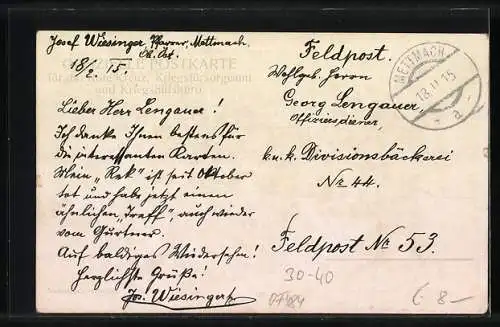 Josef Wiesinger, Pfarrer, Mettmach,
Ob. Öst.
18/2. 15.
OFFIZIELLE POSTKARTE
für das Rote Kreuz, Kriegsfürsorgeamt
und Kriegshilfsbüro
Lieber Herr Lengauer!
Ich danke Ihnen bestens für
die interessanten Karten.
Mein „Rek" ist seit Oktober
tot und habe jetzt einen
ähnlichen „Treff", auch wieder
vom Gurtner.
Auf baldiges Wiedersehn!
Herzlichste Grüße!
Jos. Wiesinger Pf.
Feldpost.
Wohlgeb. Herrn
Georg Lengauer,
Offiziersdiener,
k.u.k. Divisionsbäckerei
No 44.
Feldpost No 53.
METTMACH
18.II.15
- a -
30-40
07484
€ 8-